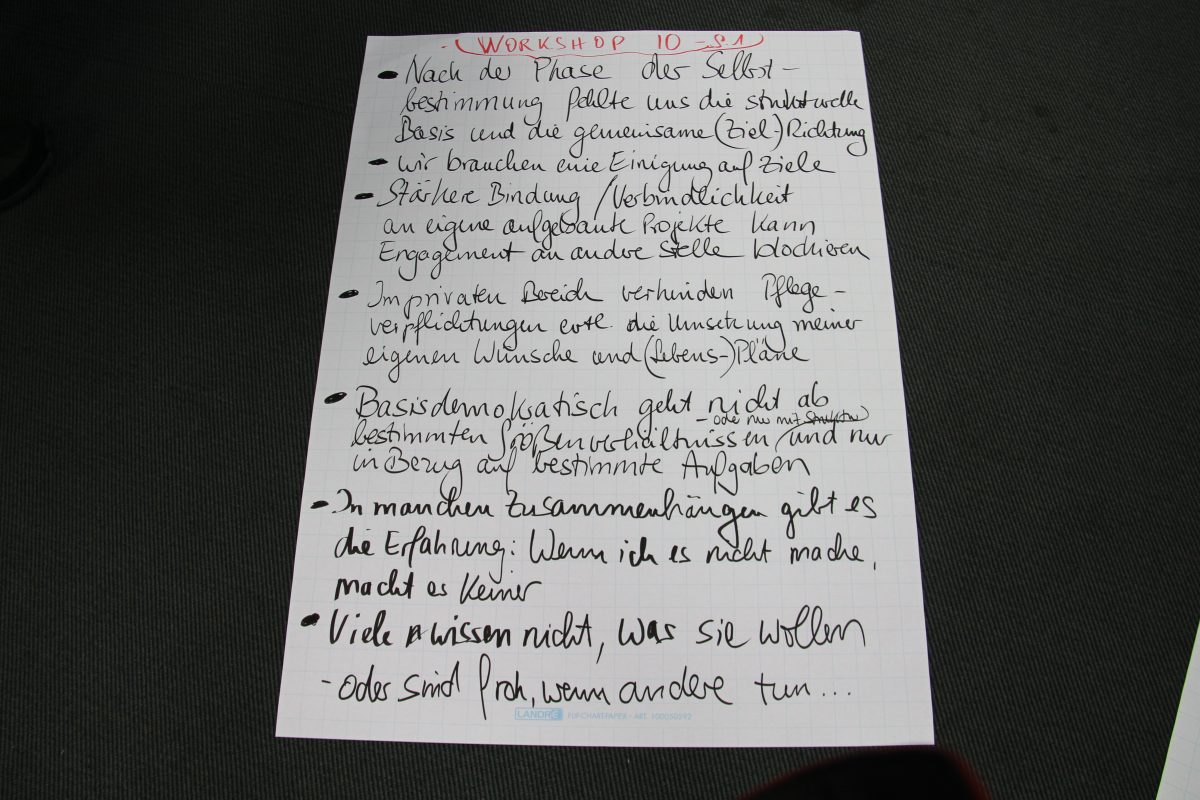 WORKSHOP 10 - S.1
• Nach der Phase der Selbst-
bestimmung fehlte uns die strukturelle
Basis und die gemeinsame (Ziel-)Richtung
• wir brauchen eine Einigung auf Ziele
• Stärkere Bindung / Verbindlichkeit
an eigene aufgebaute Projekte kann
Engagement an andere Stelle blockieren
• Im privaten Bereich verhindern Pflege-
verpflichtungen evtl. die Umsetzung meiner
eigenen Wünsche und (Lebens-)Pläne
• Basisdemokratisch geht nicht ab
- oder nur mit Struktur
bestimmten Größenverhältnissen und nur
in Bezug auf bestimmte Aufgaben
• In manchen Zusammenhängen gibt es
die Erfahrung: Wenn ich es nicht mache,
macht es Keiner
• Viele wissen nicht, was sie wollen
- oder sind froh, wenn andere tun...
LANDRÉ FLIPCHARTPAPIER - ART. 100050592